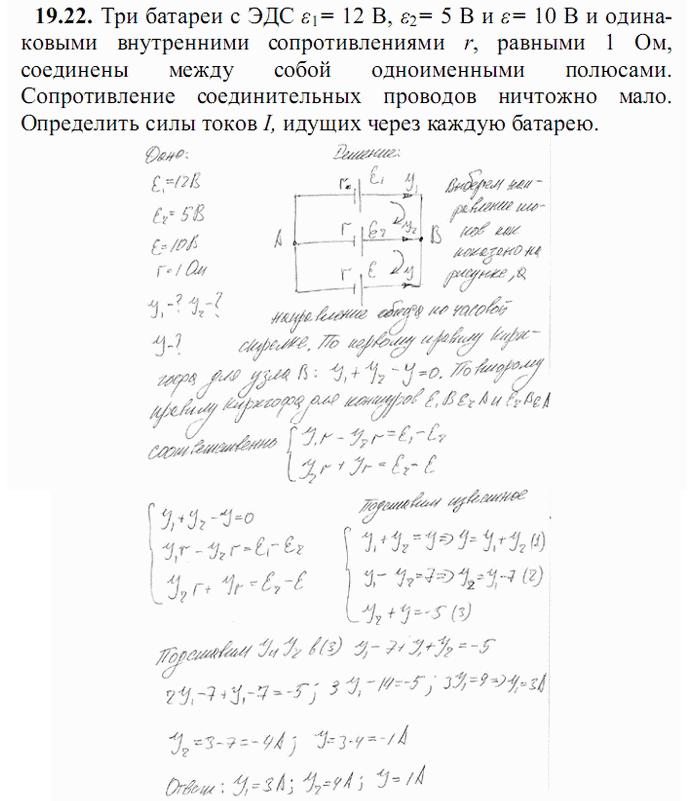 19.22. Три батареи с ЭДС ε1= 12 В, ε2= 5 В и ε= 10 В и одина-
ковыми внутренними сопротивлениями r, равными 1 Ом,
соединены между собой одноименными полюсами.
Сопротивление соединительных проводов ничтожно мало.
Определить силы токов I, идущих через каждую батарею.
Дано:
ε1=12В
ε2=5В
ε=10В
r=1 Ом
У1-? У2-?
У-?
Решение:
r ε1 У1
A r ε2 У2 B
r ε У
Выберем нап-
равление то-
ков как
показано на
рисунке, а
направление обхода по часовой
стрелке. По первому правилу Кирх-
гофа для узла В: У1+У2-У=0. По второму
правилу Кирхгофа для контуров ε1Bε2A и ε2BεA
соответственно
У1r-У2r=ε1-ε2
У2r+Уr=ε2-ε
У1+У2-У=0
У1r-У2r=ε1-ε2
У2r+Уr=ε2-ε
Подставим известное
У1+У2=У=>У=У1+У2 (1)
У1-У2=7=>У2=У1-7 (2)
У2+У=-5 (3)
Подставим У и У2 в (3) У1-7+У1+У2=-5
2У1-7+У1-7=-5; 3У1-14=-5; 3У1=9=>У1=3А
У2=3-7=-4А; У=3-4=-1А
Ответ: У1=3А; У2=4А; У=1А